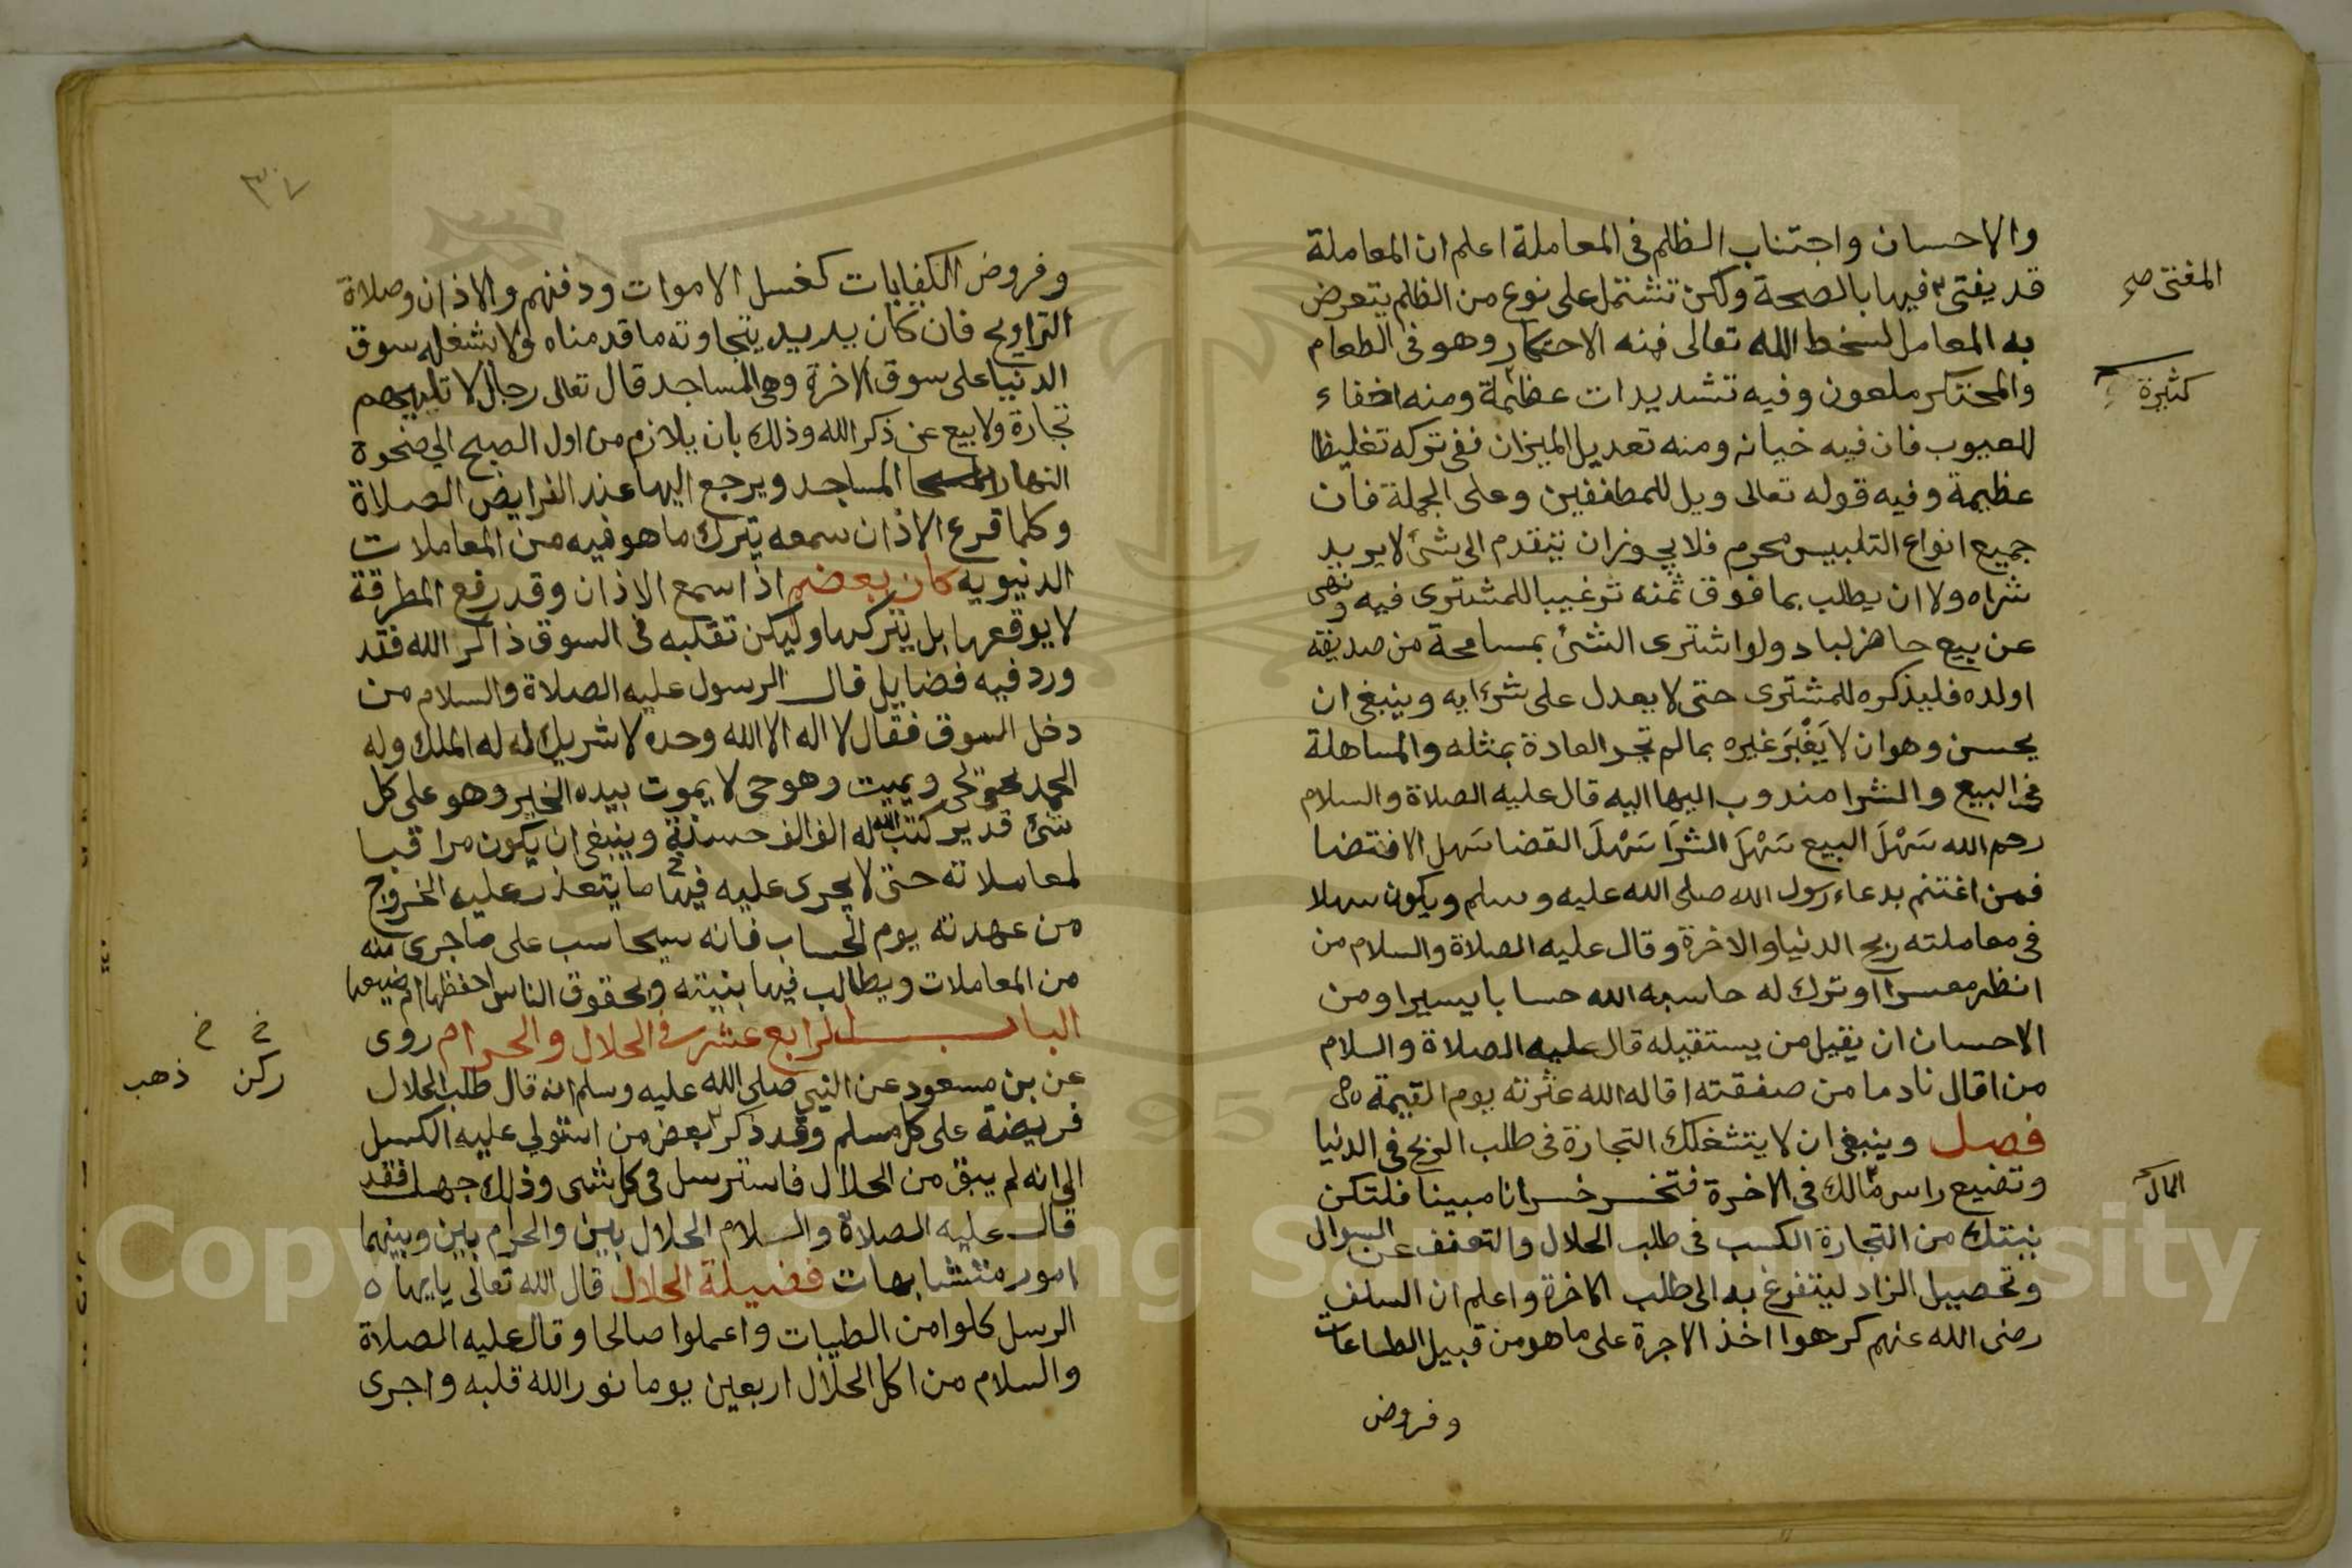 والاحسان واجتناب الظلم فى المعاملة اعلم ان المعاملة
قد يفتى فيها بالصحة ولكن تشتمل على نوع من الظلم يتعرض
المفتى صح
به المعامل لسخط الله تعالى فمنه الاحتكار وهو فى الطعام
والمحتكر ملعون وفيه تشديدات عظيمة ومنه اخفاء
كثيرة
العيوب فان فيه خيانه ومنه تعديل الميزان ففى تركه تغليظا
عظيمة وفيه قوله تعالى ويل للمطففين وعلى الجملة فان
جميع انواع التلبيس محرم فلا يجوز ان يتقدم الى شئ لا يريد
شراه ولا ان يطلب بما فوق ثمنه ترغيبا للمشترى فيه ونهى
عن بيع حاضر لباد ولو اشترى الشئ بمسامحة من صديقه
اولده فليذكره للمشترى حتى لا يعدل على شرايه وينبغى ان
يحسن وهو ان لا يَغْبَنَ غيره بما لم تجر العادة بمثله والمساهلة
فى البيع والشرا مندوب اليها اليه قال عليه الصلاة والسلام
رحم الله سَهْلَ البيع سَهْلَ الشرَا سَهْلَ القضا سَهل الاقتضا
فمن اغتنم بدعاء رسول الله صلى الله عليه وسلم ويكون سهلا
فى معاملته ربح الدنيا والاخرة وقال عليه الصلاة والسلام من
انظر معسرا او ترك له حاسبه الله حسابا يسيرا ومن
الاحسان ان يقيل من يستقيله قال عليه الصلاة والسلام
من اقال نادما من صفقته اقاله الله عثرته يوم القيمة
فصل وينبغى ان لا يتشغلك التجارة فى طلب الربح فى الدنيا
وتضيع راس مالك فى الاخرة فتخسر خسرانا مبينا فلتكن
المال
نيتك من التجارة الكسب فى طلب الحلال والتعفف عن السوال
وتحصيل الزاد ليتفرغ به الى طلب الاخرة واعلم ان السلف
رضى الله عنهم كرهوا اخذ الاجرة على ما هو من قبيل الطاعات
وفروض
٣٧
وفروض الكفايات كغسل الاموات ودفنهم والاذان وصلاة
التراويح فان كان يريد بتجاوته ما قدمناه ولا يشغله سوق
الدنيا على سوق الاخرة وهى المساجد قال تعالى رجال لا تلهيهم
تجارة ولا بيع عن ذكر الله وذلك بان يلازم من اول الصبح الى ضحوة
النهار المساجد ويرجع اليها عند الفرايض الصلاة
وكلما قرع الاذان سمعه يترك ما هو فيه من المعاملات
الدنيويه كان بعضهم اذا سمع الاذان وقد رفع المطرقة
لا يوقعها بل يتركها وليكن تقلبه فى السوق ذاكر الله فقد
ورد فيه فضايل قال الرسول عليه الصلاة والسلام من
دخل السوق فقال لا اله الا الله وحده لا شريك له له الملك وله
الحمد يحيى ويميت وهو حى لا يموت بيده الخير وهو على كل
شئ قدير كتب الله له الف الف حسنة وينبغى ان يكون مراقبا
لمعاملاته حتى لا يجرى عليه فيها ما يتعذر عليه الخروج
من عهدته يوم الحساب فانه سيحاسب على ما جرى منه
من المعاملات ويطالب فيها بنيته وبحقوق الناس احفظها ام ضيعها
الباب الرابع عشر فى الحلال والحرام روى
عن بن مسعود عن النبى صلى الله عليه وسلم انه قال طلب الحلال
خ خ
ركن ذهب
فريضة على كل مسلم وقد ذكر بعض من استولى عليه الكسل
الى انه لم يبق من الحلال فاسترسل فى كل شى وذلك جهل فقد
قال عليه الصلاة والسلام الحلال بين والحرام بين وبينهما
امور متشابهات فضيلة الحلال قال الله تعالى يايها
الرسل كلوا من الطيبات واعملوا صالحا وقال عليه الصلاة
والسلام من اكل الحلال اربعين يوما نور الله قلبه واجرى
Copyright © King Saud University